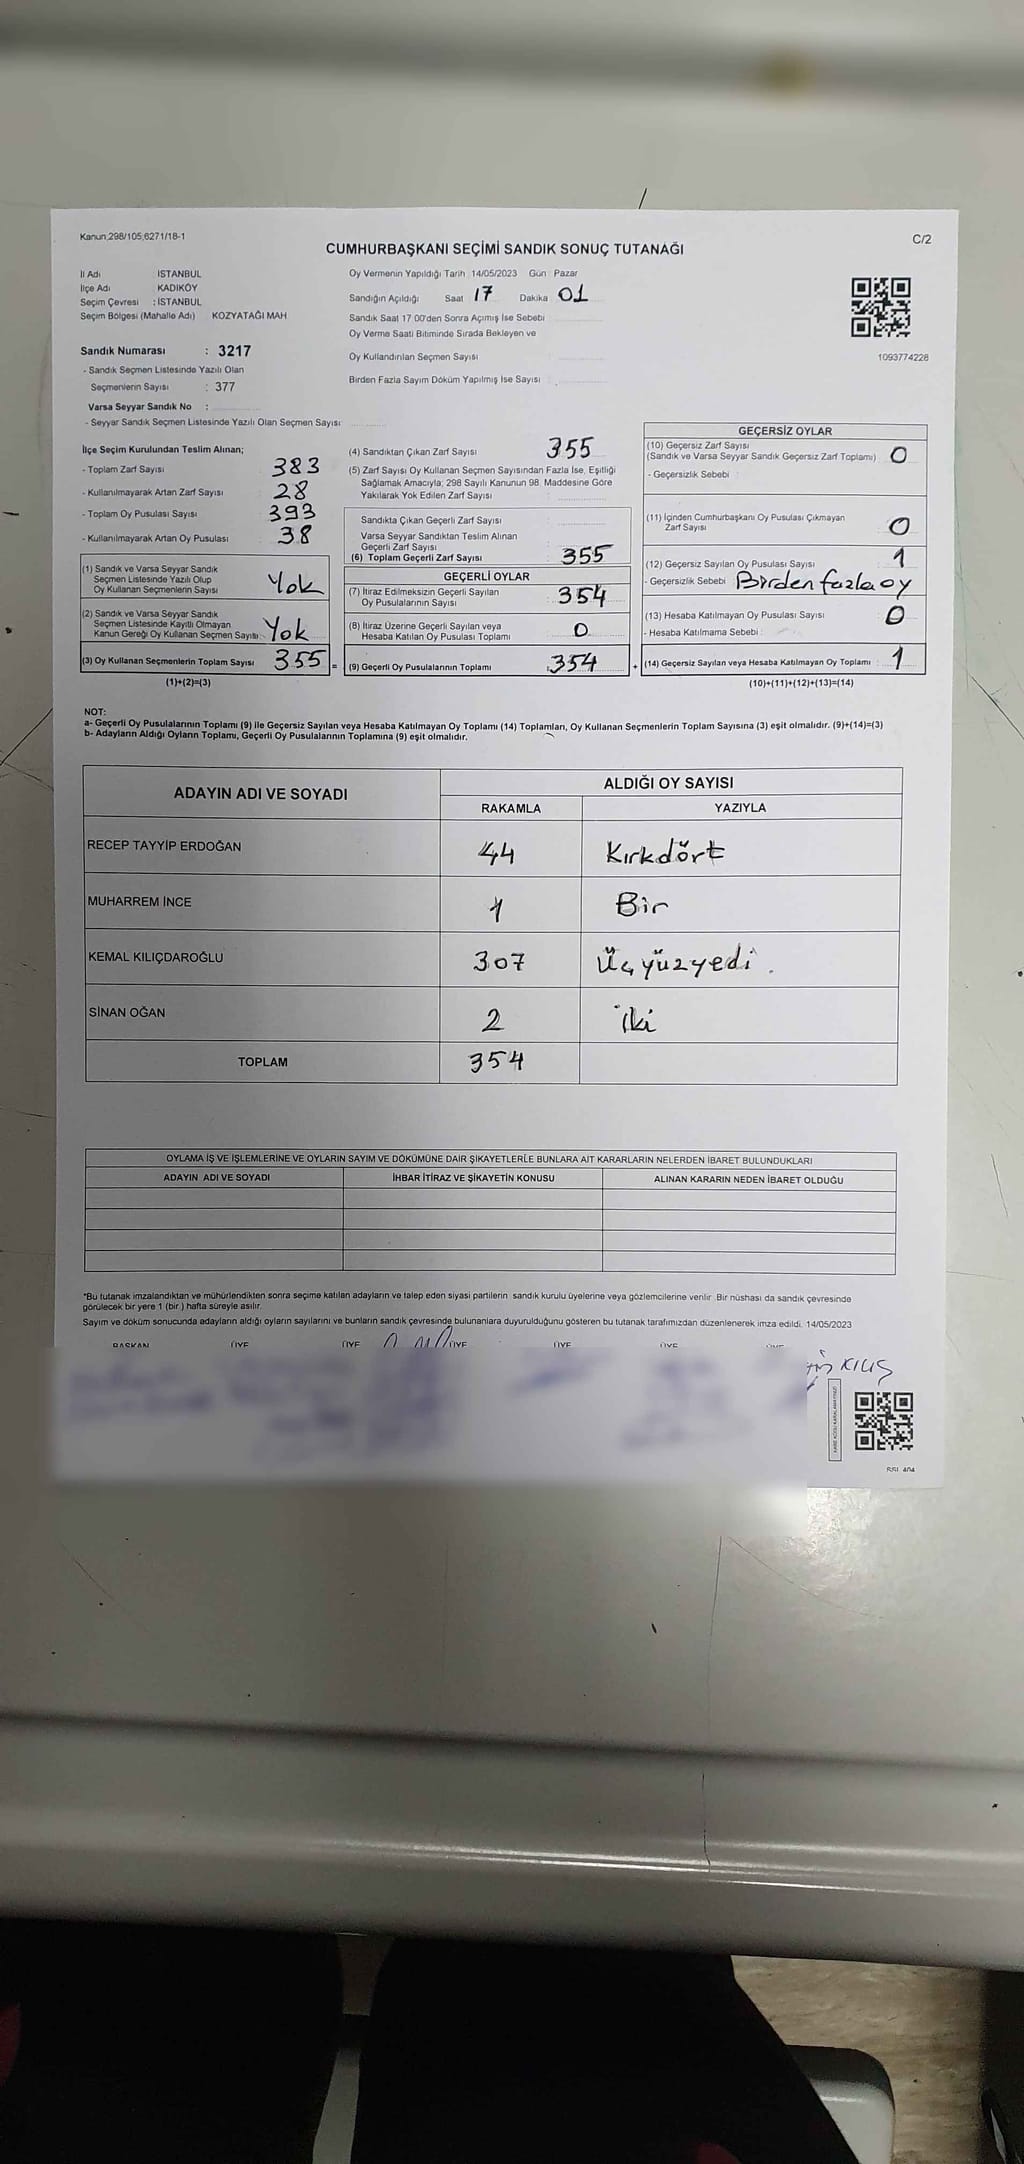 Kanun,298/105,6271/18-1
C/2
CUMHURBAŞKANI SEÇİMİ SANDIK SONUÇ TUTANAĞI
İl Adı İSTANBUL
İlçe Adı KADIKÖY
Seçim Çevresi : İSTANBUL
Seçim Bölgesi (Mahalle Adı) KOZYATAĞI MAH
Sandık Numarası : 3217
- Sandık Seçmen Listesinde Yazılı Olan
Seçmenlerin Sayısı : 377
Varsa Seyyar Sandık No :
- Seyyar Sandık Seçmen Listesinde Yazılı Olan Seçmen Sayısı
Oy Vermenin Yapıldığı Tarih 14/05/2023 Gün Pazar
Sandığın Açıldığı Saat 17 Dakika 01
Sandık Saat 17.00'den Sonra Açımış İse Sebebi
Oy Verme Saati Bitiminde Sırada Bekleyen ve
Oy Kullandırılan Seçmen Sayısı
Birden Fazla Sayım Döküm Yapılmış İse Sayısı
1093774228
İlçe Seçim Kurulundan Teslim Alınan;
- Toplam Zarf Sayısı 383
- Kullanılmayarak Artan Zarf Sayısı 28
- Toplam Oy Pusulası Sayısı 393
- Kullanılmayarak Artan Oy Pusulası 38
(1) Sandık ve Varsa Seyyar Sandık
Seçmen Listesinde Yazılı Olup
Oy Kullanan Seçmenlerin Sayısı Yok
(2) Sandık ve Varsa Seyyar Sandık
Seçmen Listesinde Kayıtlı Olmayan
Kanun Gereği Oy Kullanan Seçmen Sayısı Yok
(3) Oy Kullanan Seçmenlerin Toplam Sayısı 355 =
(1)+(2)=(3)
(4) Sandıktan Çıkan Zarf Sayısı 355
(5) Zarf Sayısı Oy Kullanan Seçmen Sayısından Fazla İse, Eşitliği
Sağlamak Amacıyla; 298 Sayılı Kanunun 98. Maddesine Göre
Yakılarak Yok Edilen Zarf Sayısı
Sandıkta Çıkan Geçerli Zarf Sayısı
Varsa Seyyar Sandıktan Teslim Alınan
Geçerli Zarf Sayısı
(6) Toplam Geçerli Zarf Sayısı 355
GEÇERLİ OYLAR
(7) İtiraz Edilmeksizin Geçerli Sayılan
Oy Pusulalarının Sayısı : 354
(8) İtiraz Üzerine Geçerli Sayılan veya
Hesaba Katılan Oy Pusulası Toplamı 0
(9) Geçerli Oy Pusulalarının Toplamı 354 +
GEÇERSİZ OYLAR
(10) Geçersiz Zarf Sayısı
(Sandık ve Varsa Seyyar Sandık Geçersiz Zarf Toplamı) 0
- Geçersizlik Sebebi
(11) İçinden Cumhurbaşkanı Oy Pusulası Çıkmayan
Zarf Sayısı 0
(12) Geçersiz Sayılan Oy Pusulası Sayısı : 1
- Geçersizlik Sebebi Birden fazla oy
(13) Hesaba Katılmayan Oy Pusulası Sayısı 0
- Hesaba Katılmama Sebebi
(14) Geçersiz Sayılan veya Hesaba Katılmayan Oy Toplamı 1
(10)+(11)+(12)+(13)=(14)
NOT:
a- Geçerli Oy Pusulalarının Toplamı (9) ile Geçersiz Sayılan veya Hesaba Katılmayan Oy Toplamı (14) Toplamları, Oy Kullanan Seçmenlerin Toplam Sayısına (3) eşit olmalıdır. (9)+(14)=(3)
b- Adayların Aldığı Oyların Toplamı, Geçerli Oy Pusulalarının Toplamına (9) eşit olmalıdır.
ADAYIN ADI VE SOYADI ALDIĞI OY SAYISI
RAKAMLA YAZIYLA
RECEP TAYYİP ERDOĞAN 44 Kırkdört
MUHARREM İNCE 1 Bir
KEMAL KILIÇDAROĞLU 307 Üçyüzyedi.
SİNAN OĞAN 2 iki
TOPLAM 354
OYLAMA İŞ VE İŞLEMLERİNE VE OYLARIN SAYIM VE DÖKÜMÜNE DAİR ŞİKAYETLERLE BUNLARA AİT KARARLARIN NELERDEN İBARET BULUNDUKLARI
ADAYIN ADI VE SOYADI İHBAR İTİRAZ VE ŞİKAYETİN KONUSU ALINAN KARARIN NEDEN İBARET OLDUĞU
*Bu tutanak imzalandıktan ve mühürlendikten sonra seçime katılan adayların ve talep eden siyasi partilerin sandık kurulu üyelerine veya gözlemcilerine verilir. Bir nüshası da sandık çevresinde
görülecek bir yere 1 (bir ) hafta süreyle asılır.
Sayım ve döküm sonucunda adayların aldığı oyların sayılarını ve bunların sandık çevresinde bulunanlara duyurulduğunu gösteren bu tutanak tarafımızdan düzenlenerek imza edildi. 14/05/2023
BAŞKAN ÜYE ÜYE ÜYE ÜYE ÜYE ÜYE
KILIÇ